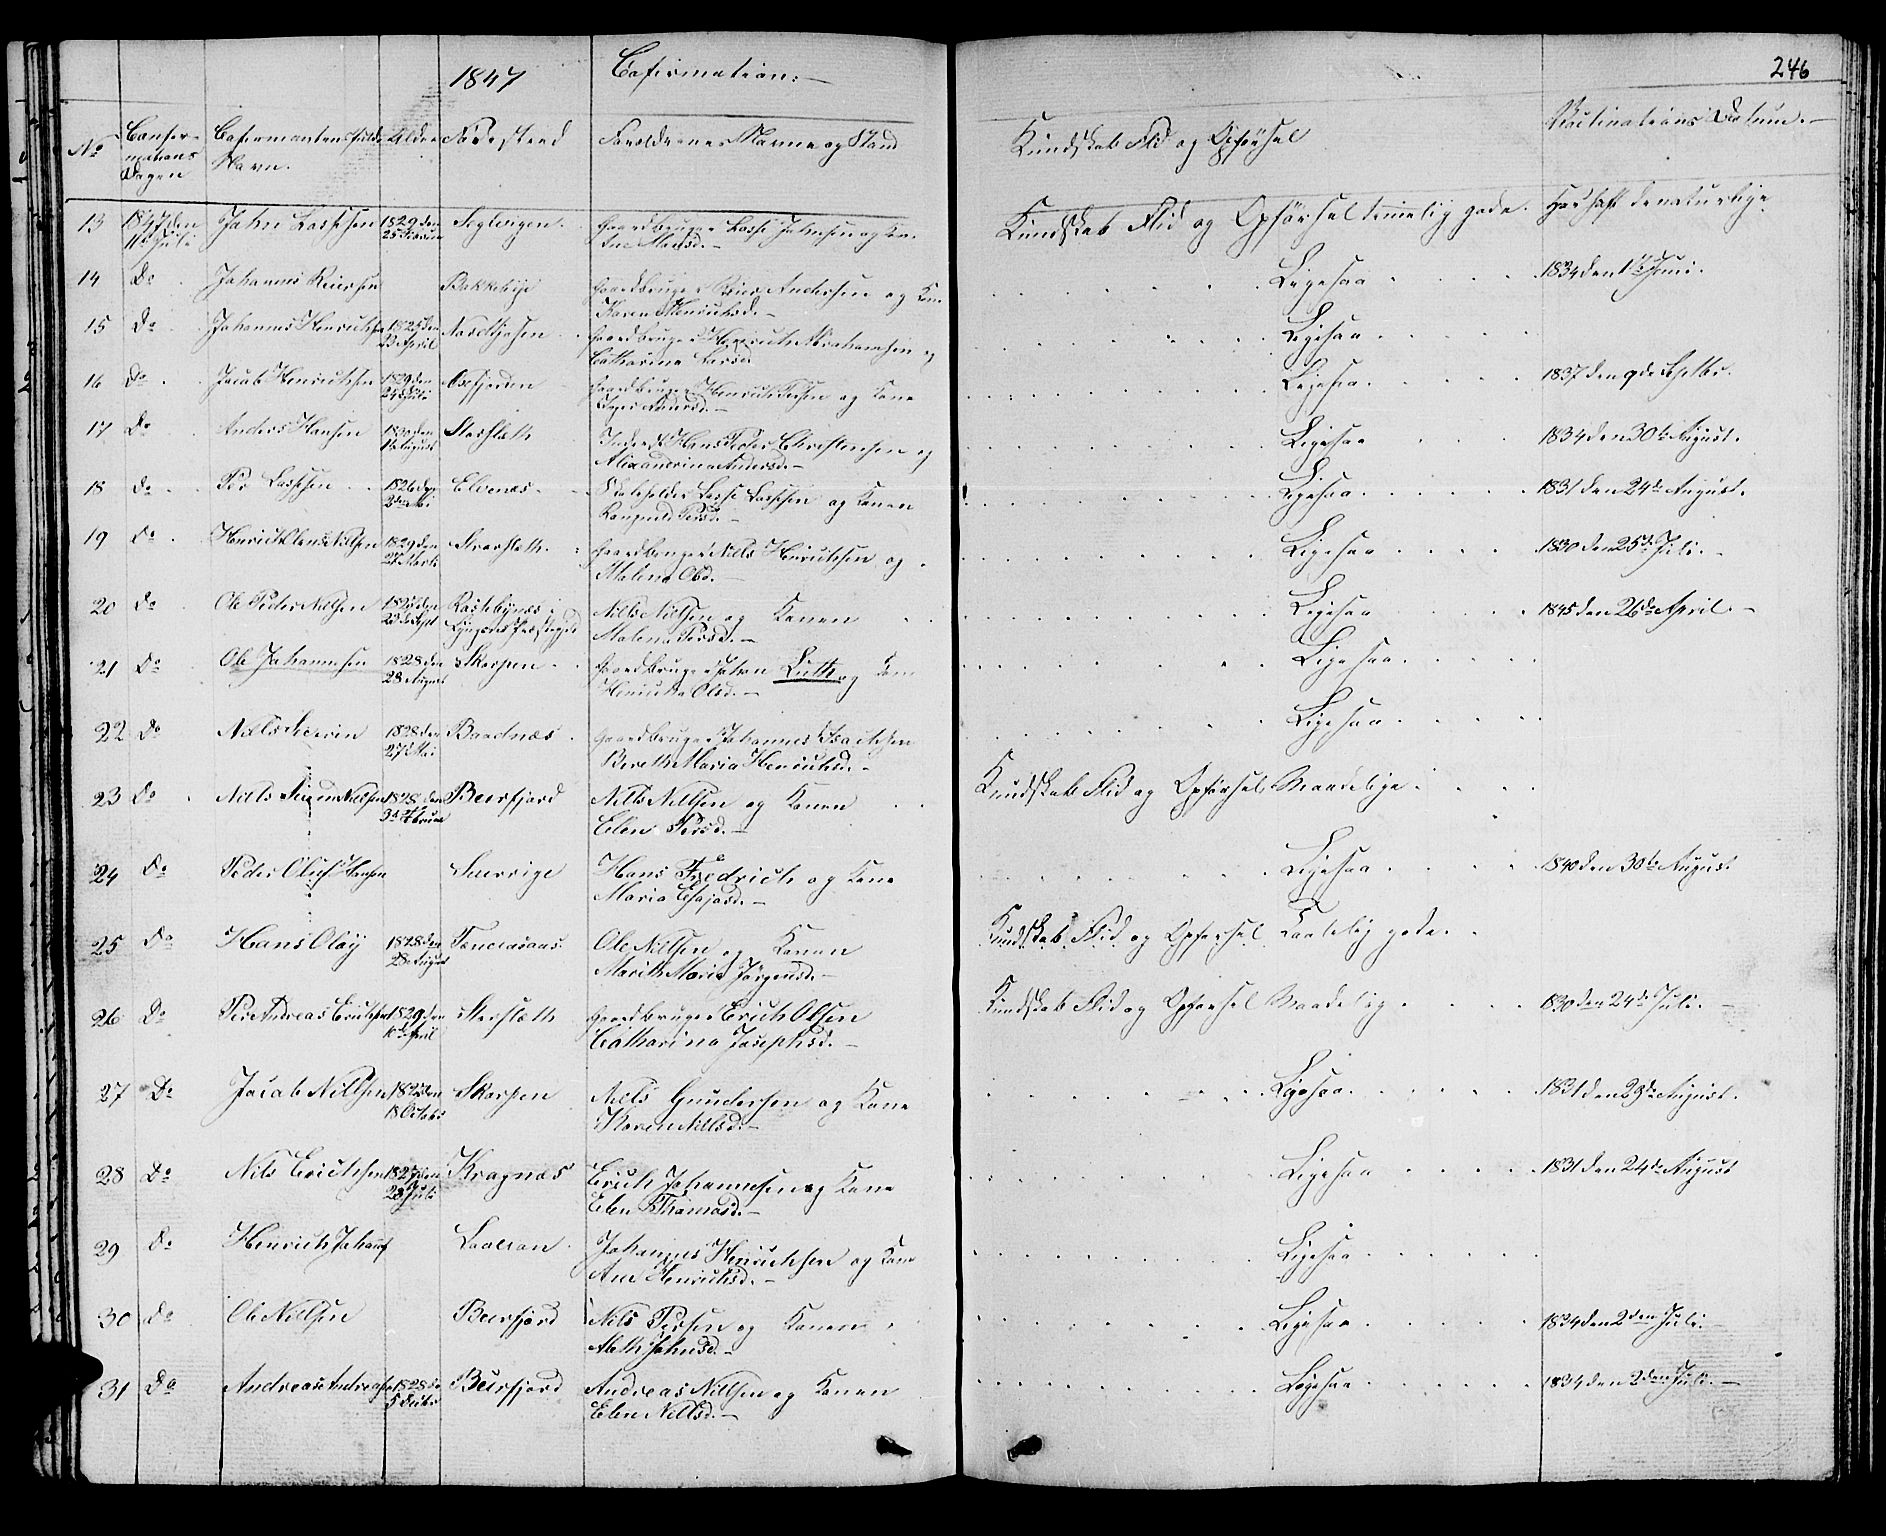 1847 Cofirmation:
246
No
Confer-
mations
Dagen
Cofirmantens fulde
Navn.
Alder
Fødested
Forældrenes Navne og Stand
Kundskab Flid og Opførsel
Vactinations Datum.
13 1847 den 11te Juli Johan Lassesen 1829 den Gaardbruger Lasse Johnsen og Kone Kundskab Flid og Opførsel temelig gode. Har haft de naturlige
14 Do Johannes Reiersen Bakkebye Gaardbruger Reier Andersen og Kone Karen Henrichsd. Ligesaa 1834 den 1te Juni.
15 Do Johannes Henrichsen April Gaardbruger Henrich Abrahamsen og Catharina Larsd. Ligesaa
16 Do Jacob Henrichsen 1829 den 24 Juli Oxfjorden Gaardbruger Henrich og Kone Ligesaa 1837 den 9de Septbr.
17 Do Anders Hansen 1830 den August Storslæth Inderst Hans Peder Christensen og Alexandrina Andersd. Ligesaa 1834 den 30te August.
18 do Per Lassesen 1826 den Elvenæs Lasse Lassesen og Konen Ragnild Persd. Ligesaa 1831 den 24de August.
19 do Henrich Olaus Nilsen 1829 den 27 Marts Storslæth Gaardbruger Nils Henrichsen og Malena Olsd. Ligesaa 1830 den 25de Juli.
20 do Ole Peder Nielsen Lyngens Præstegjeld Nils Nilsen og Konen Malena Persd. Ligesaa 1845 den 26de April.
21 Do Ole Johannesen 1828 den 28 August Skarpen Gaardbruger Johan Luth og Kone Henrikka Olsd. Ligesaa
22 Do Niels 1828 den 27 Mai Baadnæs Gaardbruger Johannes Isachsen Bereth Maria Henrichsd. Ligesaa
23 Do Nils Nilsen 1828 den 3d Februar Beerfjord Nils Nilsen og Konen Elen Persd. Kundskab Flid og Opførsel Maadelige
24 do Peder Oluf Hansen Sverrige Hans Fredrich og Kone Maria Ligesaa 1840 den 30te August
25 Do Hans Olai 1828 den 28 August Ole Nilsen og Konen Marith Maria Jørgensd. Kundskab Flid og Opførsel Taalelig gode.
26 Do Per Andreas Erichsen 1829 den April Storslæth Gaardbruger Erich Olsen Catharina Josephsd. Kundskab Flid og Opførsel Maadelig 1830 den 24de Juli.
27 Do Jacob Nilsen 18 October Skarpen Nils Gundersen og Kone Karen Nilsd. Ligesaa 1831 den 23de August.
28 Do Nils Erichsen 1827 den 28 Juli Kragnæs Erich Johannesen og Kone Elen Thomasd. Ligesaa 1831 den 24de August
29 Do Henrich Johans Johannes Henrichsen og Kone Ane Henrichsd. Ligesaa
30 do Ole Nilsen Beerfjord Nils Persen og Konen Abeth Johnsd. Ligesaa 1834 den 2den Juli.
31 Do Andreas Andreasen 1828 Beerfjord Andreas Nilsen og Konen Elen Nilsd. Ligesaa 1834 den 2den Juli.